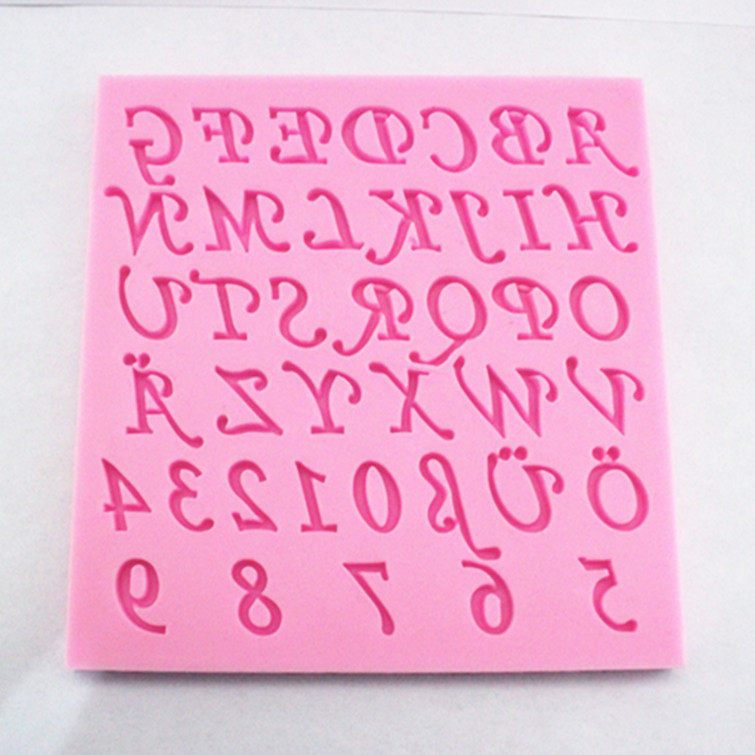 A B C D E F G
H I J K L M N
O P Q R S T U
V W X Y Z Ä
Ö Ü ß 0 1 2 3 4
5 6 7 8 9